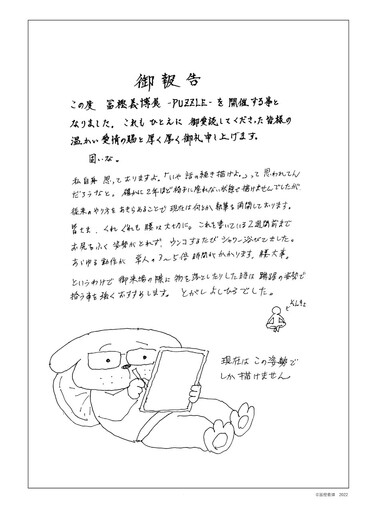 御報告
この度 冨樫義博展 -PUZZLE- を開催する事と
なりました。これもひとえに御愛読してくださった皆様の
温かい愛情の賜と厚く厚く御礼申し上げます。
固いな。
私自身思っておりますよ。「いや話の続き描けよ。」って思われてん
だろうなと。確かに2年ほど椅子に座れない状態で描けませんでしたが
従来のやり方をあきらめることで現在は何とか執筆を再開しております。
皆さま、くれぐれも腰は大切に。これを書いている2週間前まで
お尻もふく姿勢がとれず、ウンコするたびシャワー浴びてました。
あらゆる動作が常人の3〜5倍時間がかかります。腰大事。
というわけで御来場の際に物を落としたりした時は蹲踞の姿勢で
拾う事を強くおすすめします。とがしよしひろでした。
そんきょ
現在はこの姿勢で
しか描けません。
©冨樫義博 2022